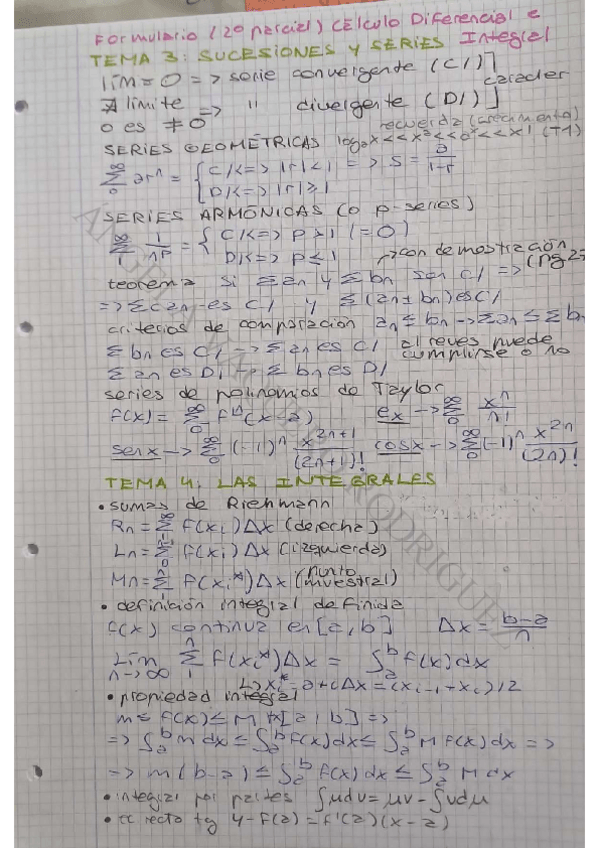 Formulario (2º parcial) Cálculo Diferencial e Integral
TEMA 3: SUCESIONES Y SERIES
lim = 0 => serie convergente (C/) ] caracter
∄ límite => " divergente (D/) ]
o es ≠ 0
recuerda (crecimiento)
SERIES GEOMÉTRICAS log₂x << x² << aˣ << x! (T1)
∑₀^∞ arⁿ = { C/<=> |r|<1 => S = a/(1-r)
D/<=> |r|≥1
SERIES ARMÓNICAS (o p-series)
∑₁^∞ 1/n^p = { C/<=> p>1 (=0)
D/<=> p≤1 → con demostración
teorema si ∑an y ∑bn son C/ =>
=> ∑c an es C/ y ∑(an ± bn) es C/
criterios de comparación an ≤ bn -> ∑an ≤ ∑bn
∑bn es C/ -> ∑an es C/ al reves puede
cumplirse o no
∑an es D/ -> ∑bn es D/
series de polinomios de Taylor
f(x) = ∑₀^∞ fⁿ(x-a) ex -> ∑₀^∞ xⁿ/n!
senx -> ∑₀^∞ (-1)ⁿ x^(2n+1)/(2n+1)! cosx -> ∑₀^∞ (-1)ⁿ x^(2n)/(2n)!
TEMA 4: LAS INTEGRALES
• sumas de Riehmann
Rn = ∑ f(xi) Δx (derecha)
Ln = ∑ f(xi) Δx (izquierda)
Mn = ∑ f(xi*) Δx (punto muestral)
• definición integral definida
f(x) continua en [a,b] Δx = (b-a)/n
Lim n->∞ ∑₁ⁿ f(xi*) Δx = ∫ₐᵇ f(x) dx
↳ xi* = a+iΔx = (xi-1 + xi)/2
• propiedad integral
m ≤ f(x) ≤ M ∀x[a,b] =>
=> ∫ₐᵇ m dx ≤ ∫ₐᵇ f(x) dx ≤ ∫ₐᵇ M f(x) dx =>
=> m(b-a) ≤ ∫ₐᵇ f(x) dx ≤ ∫ₐᵇ M dx
• integral por partes ∫u dv = uv - ∫v du
• ec recta tg y-f(a) = f'(a)(x-a)